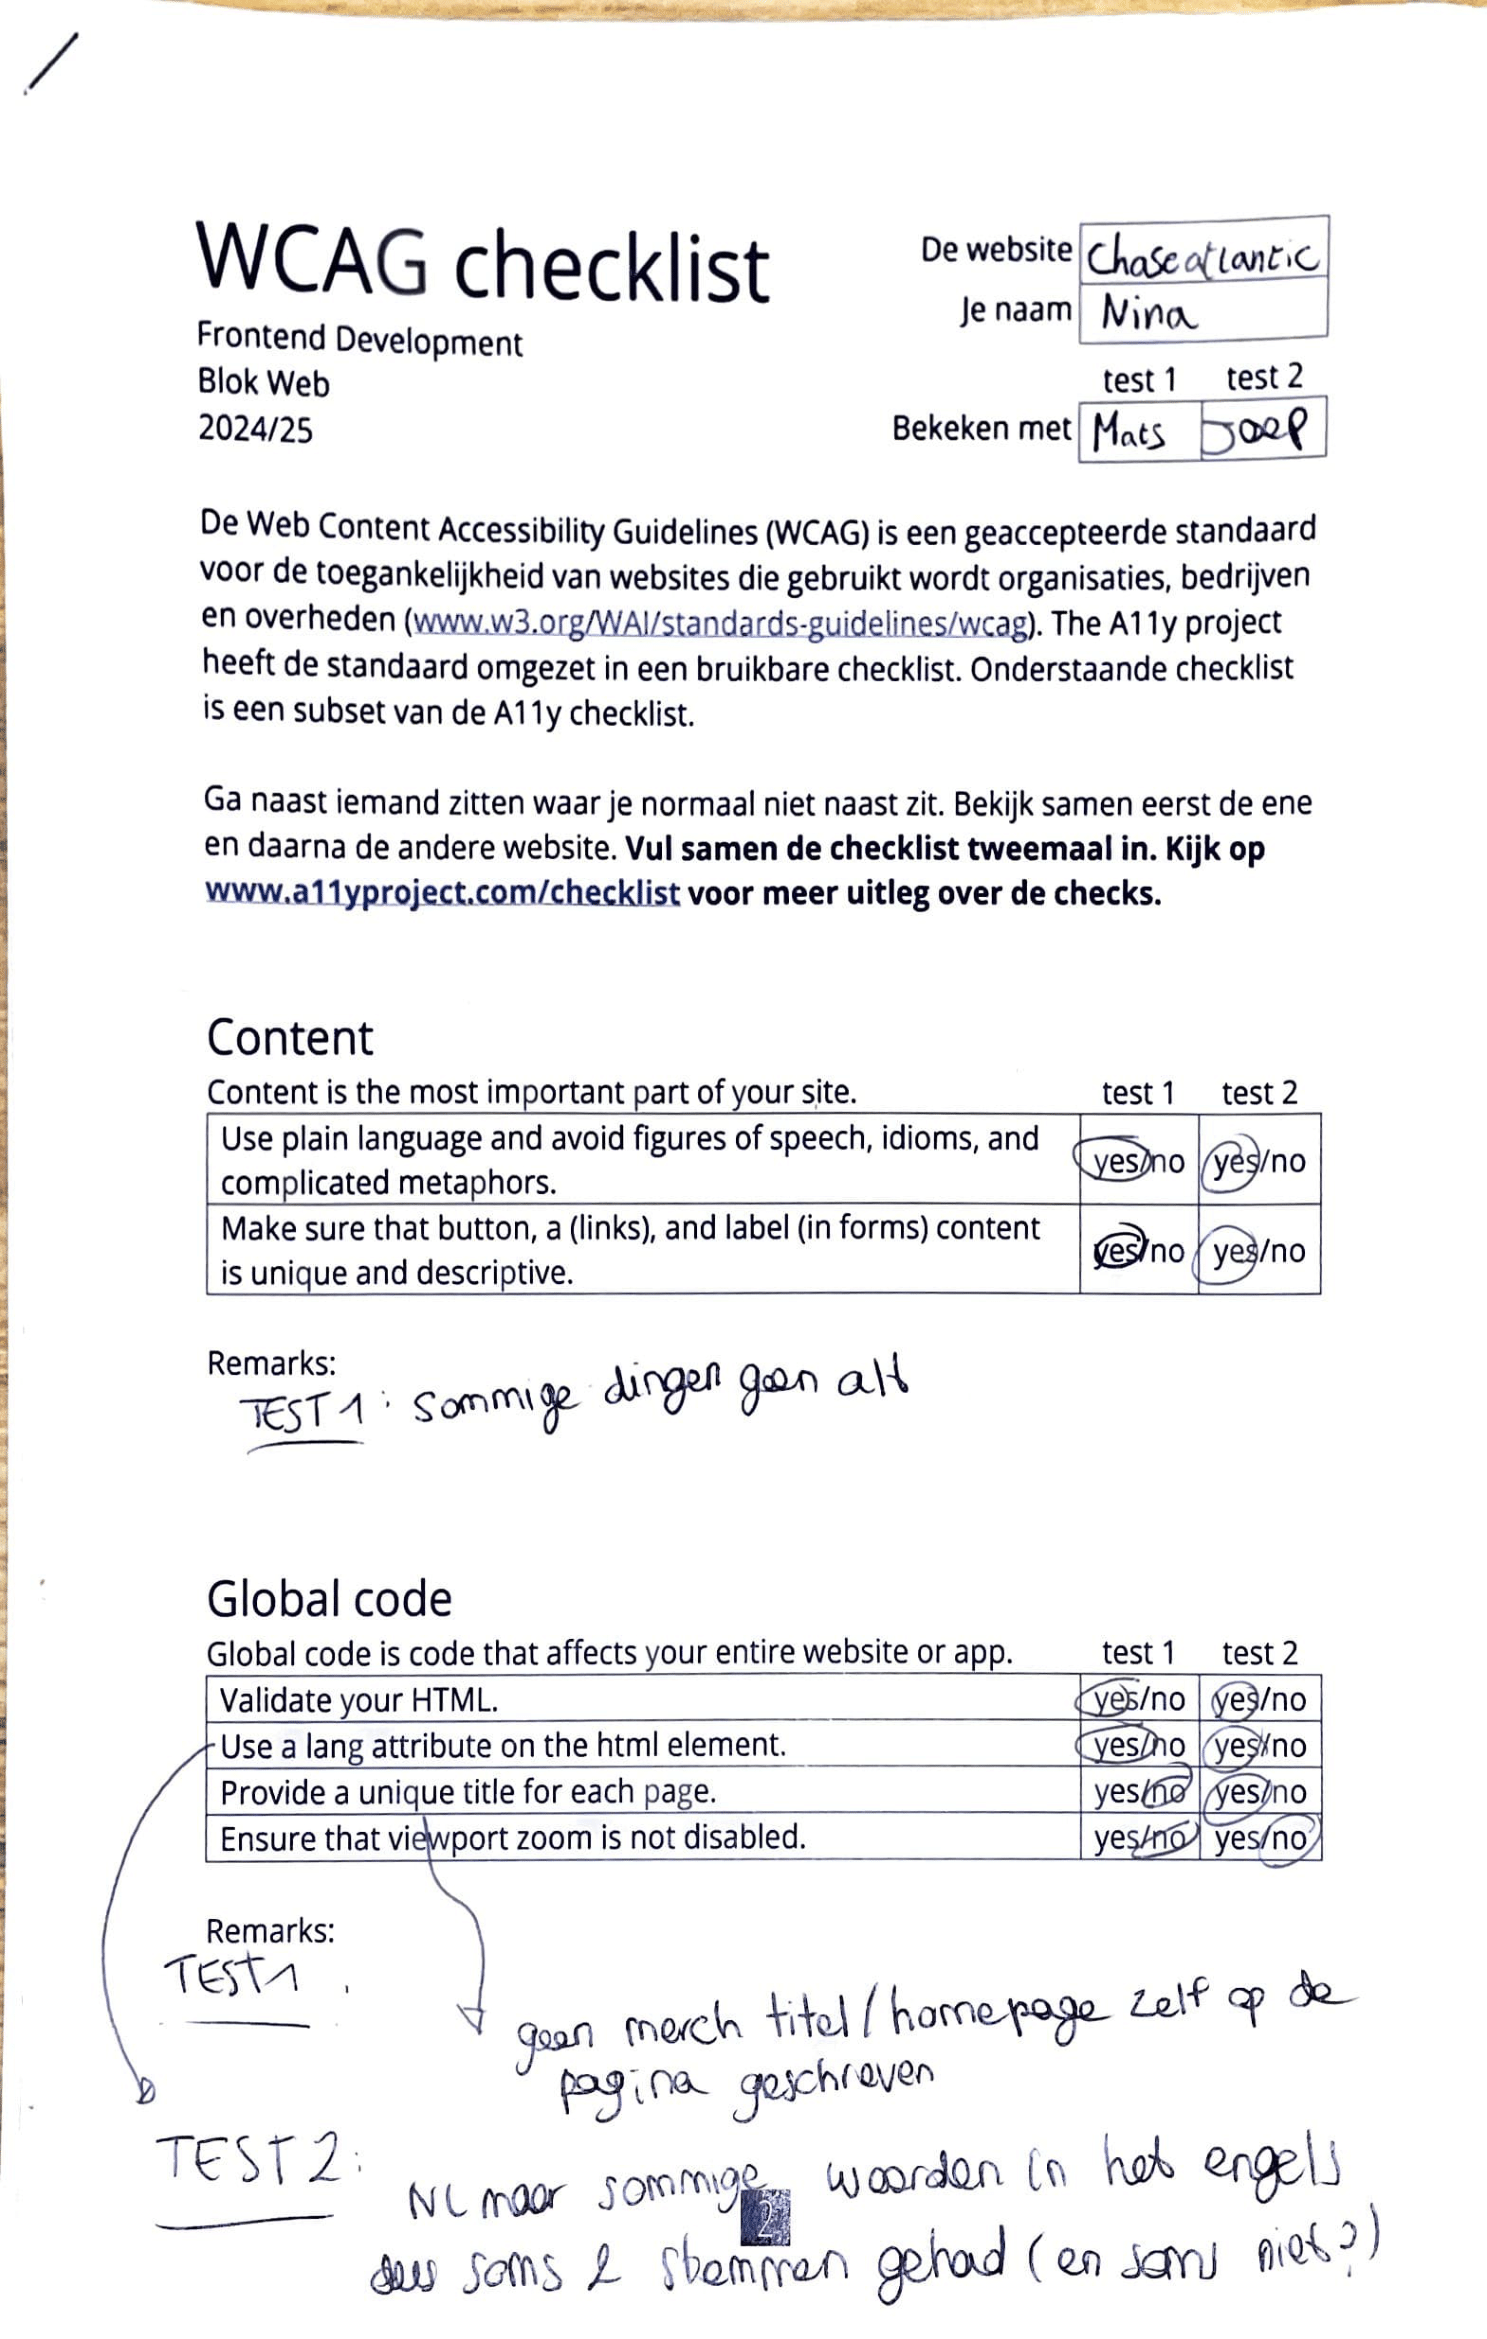 WCAG checklist
Frontend Development
Blok Web
2024/25
De website Chaseatlantic
Je naam Nina
test 1 test 2
Bekeken met Mats Joep
De Web Content Accessibility Guidelines (WCAG) is een geaccepteerde standaard
voor de toegankelijkheid van websites die gebruikt wordt organisaties, bedrijven
en overheden (www.w3.org/WAI/standards-guidelines/wcag). The A11y project
heeft de standaard omgezet in een bruikbare checklist. Onderstaande checklist
is een subset van de A11y checklist.
Ga naast iemand zitten waar je normaal niet naast zit. Bekijk samen eerst de ene
en daarna de andere website. Vul samen de checklist tweemaal in. Kijk op
www.a11yproject.com/checklist voor meer uitleg over de checks.
Content
Content is the most important part of your site. test 1 test 2
Use plain language and avoid figures of speech, idioms, and
complicated metaphors. yes/no yes/no
Make sure that button, a (links), and label (in forms) content
is unique and descriptive. yes/no yes/no
Remarks:
TEST 1: sommige dingen geen alt
Global code
Global code is code that affects your entire website or app. test 1 test 2
Validate your HTML. yes/no yes/no
Use a lang attribute on the html element. yes/no yes/no
Provide a unique title for each page. yes/no yes/no
Ensure that viewport zoom is not disabled. yes/no yes/no
Remarks:
TEST 1
geen merch titel/homepage zelf op de
pagina geschreven
TEST 2:
NL maar sommige woorden in het engels
2
soms 2 stemmen gehad (en soms niet?)